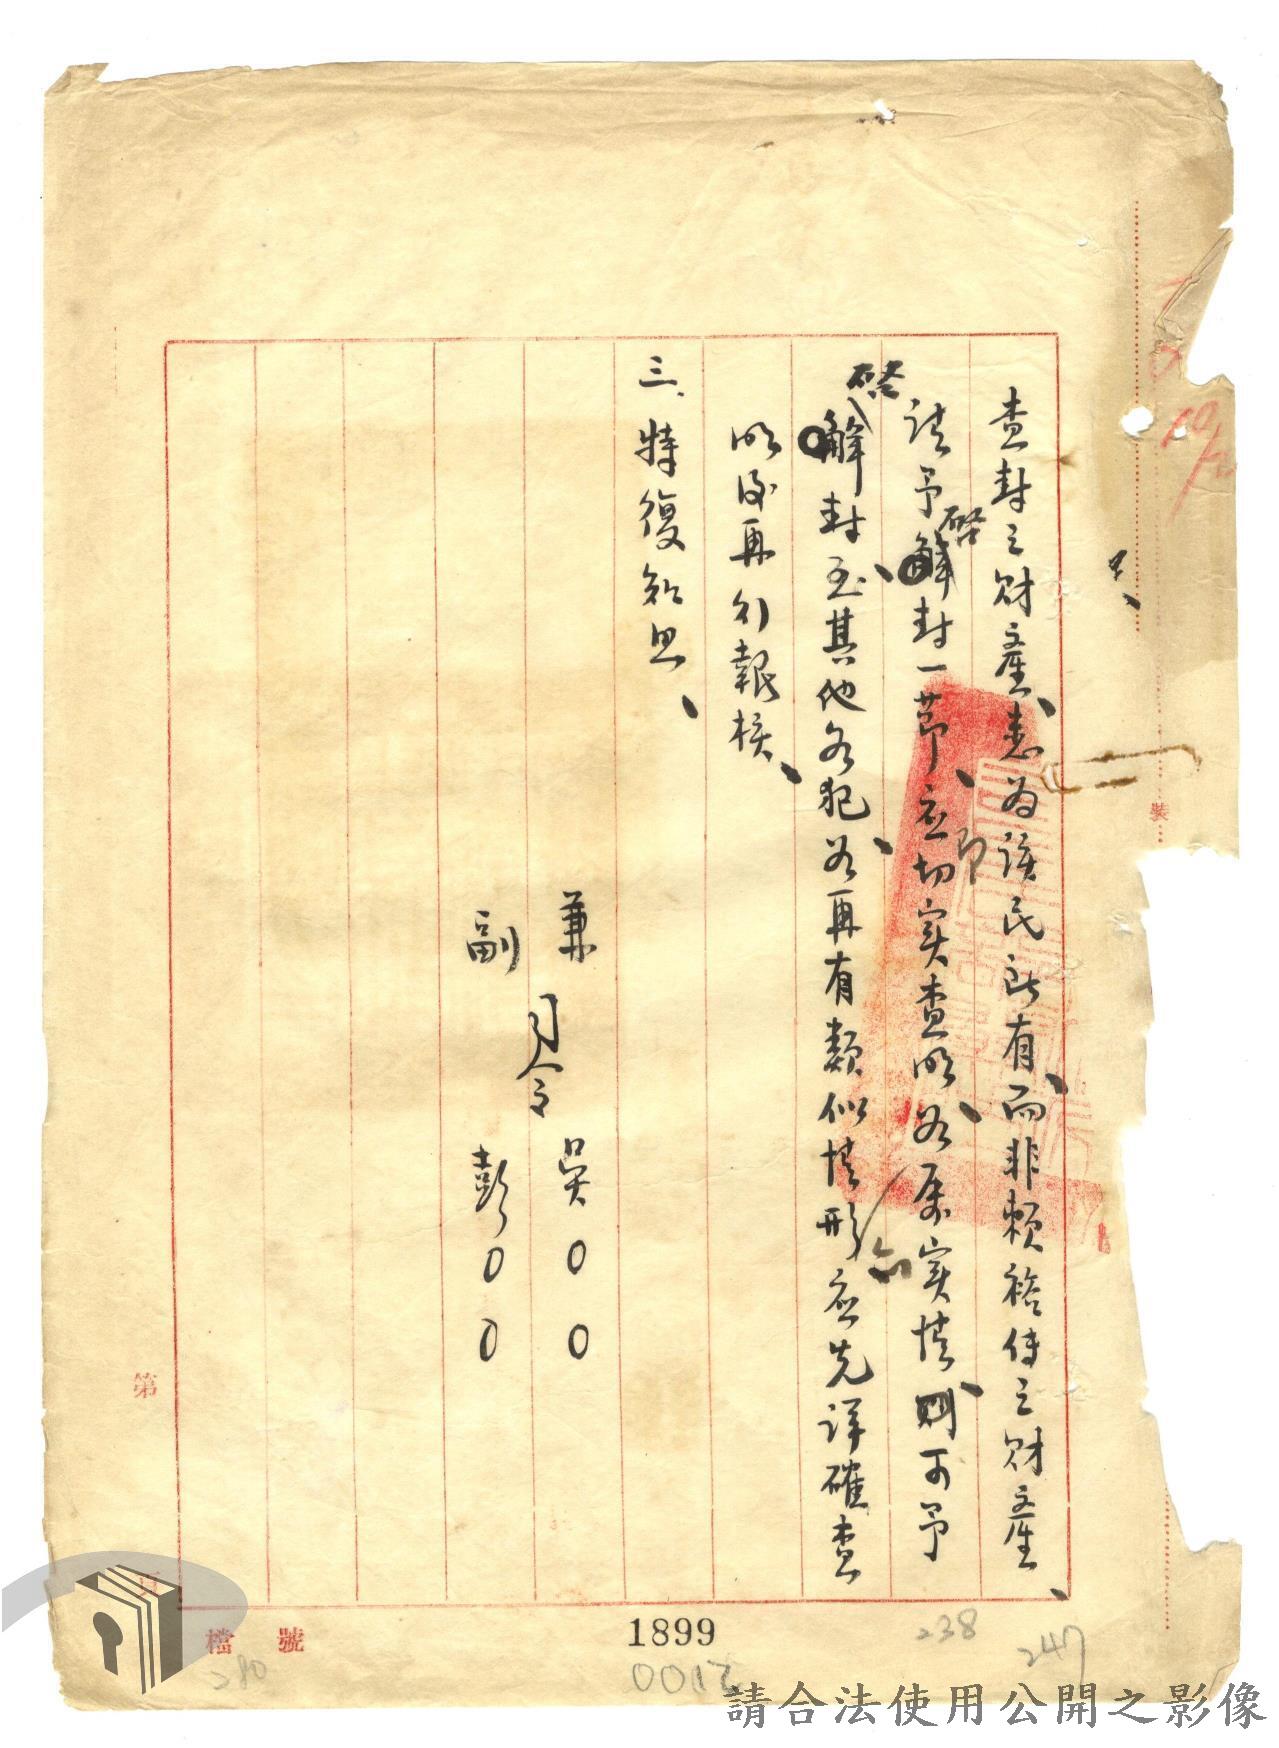 查封之財產、悉為該民所有、而非賴裕傳之財產、
請予啓封一節、应切实查明、如属实情、則可予
啓封、至其他各犯、如再有類似情形、应先詳確查
明後再行報核、
三、特復知照、
兼司令吳〇〇
副司令彭〇〇
裝
第
頁
檔號
1899
0012
238
247
280
10/2
請合法使用公開之影像